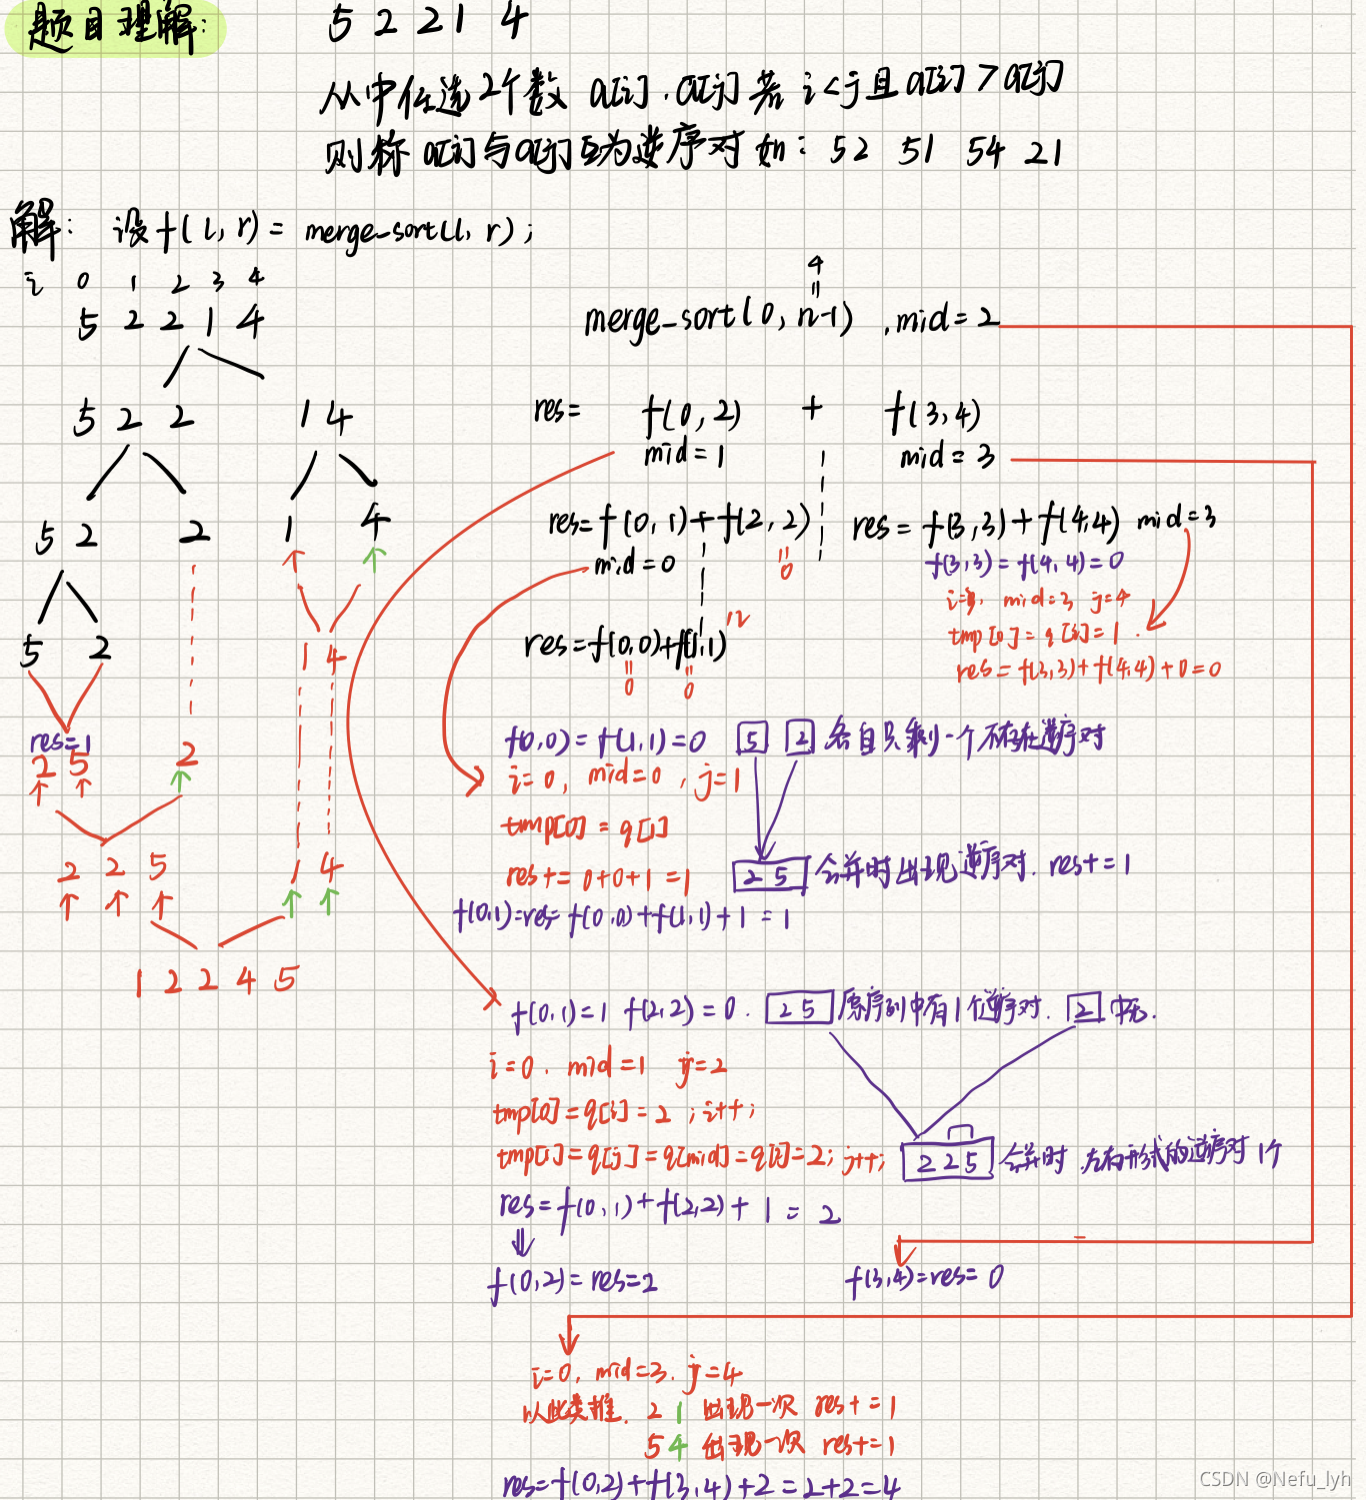 题目理解: 5 2 2 1 4
从中任选2个数 a[i] . a[j] 若 i<j 且 a[i] > a[j]
则称 a[i]与a[j]互为逆序对 如: 52 51 54 21
解: 设f(l, r) = merge_sort(l, r) ;
i 0 1 2 3 4
5 2 2 1 4
4
"
merge_sort(0, n-1) , mid = 2
5 2 2 1 4
res= f(0, 2) + f(3, 4)
mid = 1 mid = 3
5 2 2 1 4
res= f(0, 1) + f(2, 2) res = f(3,3) + f(4,4) mid=3
mid = 0 " 0
f(3,3) = f(4,4) = 0
mid=3 j=4
tmp[0] = q[i] = 1 .
res = f(3,3) + f(4,4) + 0 = 0
5 2
res = f(0,0)+f(1,1)
" 0 " 0
1 4
res=1
2 5 2
f(0,0) = f(1,1) = 0 5 2 各自只剩一个不存在逆序对
i = 0, mid=0 , j=1
tmp[0] = q[j]
res += 0+0+1 = 1 2 5 合并时出现逆序对. res+ = 1
f(0,1)=res= f(0,0)+f(1,1)+1 = 1
2 2 5 1 4
1 2 2 4 5
f(0,1)=1 f(2,2)=0 . 2 5 原序列中有1个逆序对. 2 中无.
i=0 . mid=1 j=2
tmp[0]=q[i] = 2 ; i++;
tmp[1]=q[j]=q[mid]=q[2]=2; j++; 2 2 5 合并时 左右形式的逆序对 1个
res= f(0,1)+f(2,2)+ 1 = 2
f(0,2)= res=2 f(3,4)=res= 0
i=0, mid=3. j=4
以此类推. 2 1 出现一次 res+ = 1
5 4 出现一次 res+=1
res=f(0,2)+f(3,4)+2=2+2=4
CSDN @Nefu_lyh